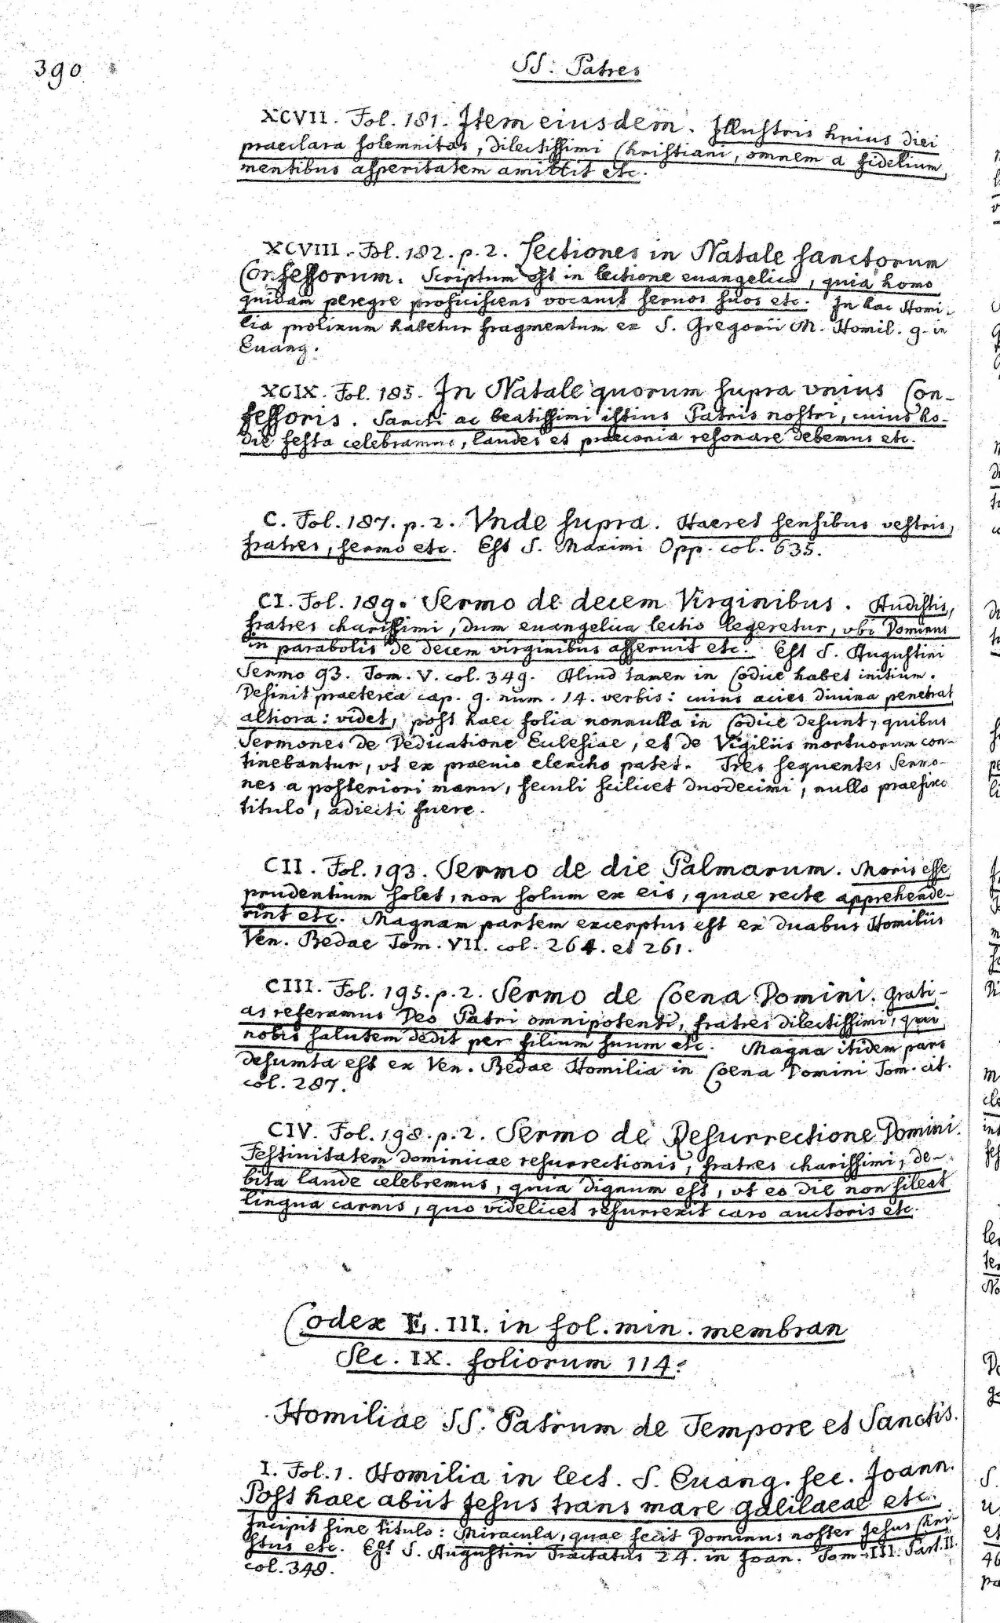 390
SS. Patres
XCVII. Fol. 181. Item eiusdem. Illustris huius diei
praeclara solemnitas, dilectissimi Christiani, omnem a fidelium
mentibus asperitatem amittit etc.
XCVIII. Fol. 182. p. 2. Lectiones in Natale sanctorum
Confessorum. Scriptum est in lectione euangelica, quia homo
quidam peregre proficiscens vocauit seruos suos etc. In hac Homi-
lia prolixum habetur fragmentum ex S. Gregorii M. Homil. 9. in
Euang.
XCIX. Fol. 185. In Natale quorum supra vnius Con-
fessoris. Sancti ac beatissimi istius Patris nostri, cuius ho-
die festa celebramus, laudes et praeconia resonare debemus etc.
C. Fol. 187. p. 2. Vnde supra. Haeret sensibus vestris,
fratres, sermo etc. Est S. Maximi Opp. col. 635.
CI. Fol. 189. Sermo de decem Virginibus. Audistis,
fratres charissimi, dum euangelica lectio legeretur, vbi Dominus
in parabolis de decem virginibus asseruit etc. Est S. Augustini
Sermo 93. Tom. V. col. 349. Aliud tamen in Codice habet initium.
Desinit praeterea cap. 9. num. 14. verbis: cuius acies diuina penetrat
altiora: videt, post haec folia nonnulla in Codice desunt, quibus
Sermones de Dedicatione Eclesiae, et de Vigiliis mortuorum con-
tinebantur, vt ex praeuio elencho patet. Tres sequentes Sermo-
nes a posteriori manu, seculi scilicet duodecimi, nullo praefixo
titulo, adiecti fuere.
CII. Fol. 193. Sermo de die Palmarum. Moris esse
prudentium solet, non solum ex eis, quae recte apprehende-
rint etc. Magnam partem excerptus est ex duabus Homiliis
Ven. Bedae Tom. VII. col. 264. et 261.
CIII. Fol. 195. p. 2. Sermo de Coena Domini. Grati-
as referamus Deo Patri omnipotenti, fratres dilectissimi, qui
nobis salutem dedit per filium suum etc. Magna itidem pars
desumta est ex Ven. Bedae Homilia in Coena Domini Tom. cit.
col. 287.
CIV. Fol. 198. p. 2. Sermo de Resurrectione Domini.
Festiuitatem Dominicae resurrectionis, fratres charissimi, de-
bita laude celebremus, quia dignum est, vt eo die non sileat
lingua carnis, quo videlicet resurrexit caro auctoris etc.
Codex E. III. in fol. min. membran
Sec. IX. foliorum 114.
Homiliae SS. Patrum de Tempore et Sanctis.
I. Fol. 1. Homilia in lect. S. Euang. sec. Joann.
Post haec abiit Jesus trans mare Galilaeae etc.
Incipit sine titulo: Miracula, quae fecit Dominus noster Jesus Chri-
stus etc. Est S. Augustini Tractatus 24. in Joan. Tom. III. Part. II.
col. 348.